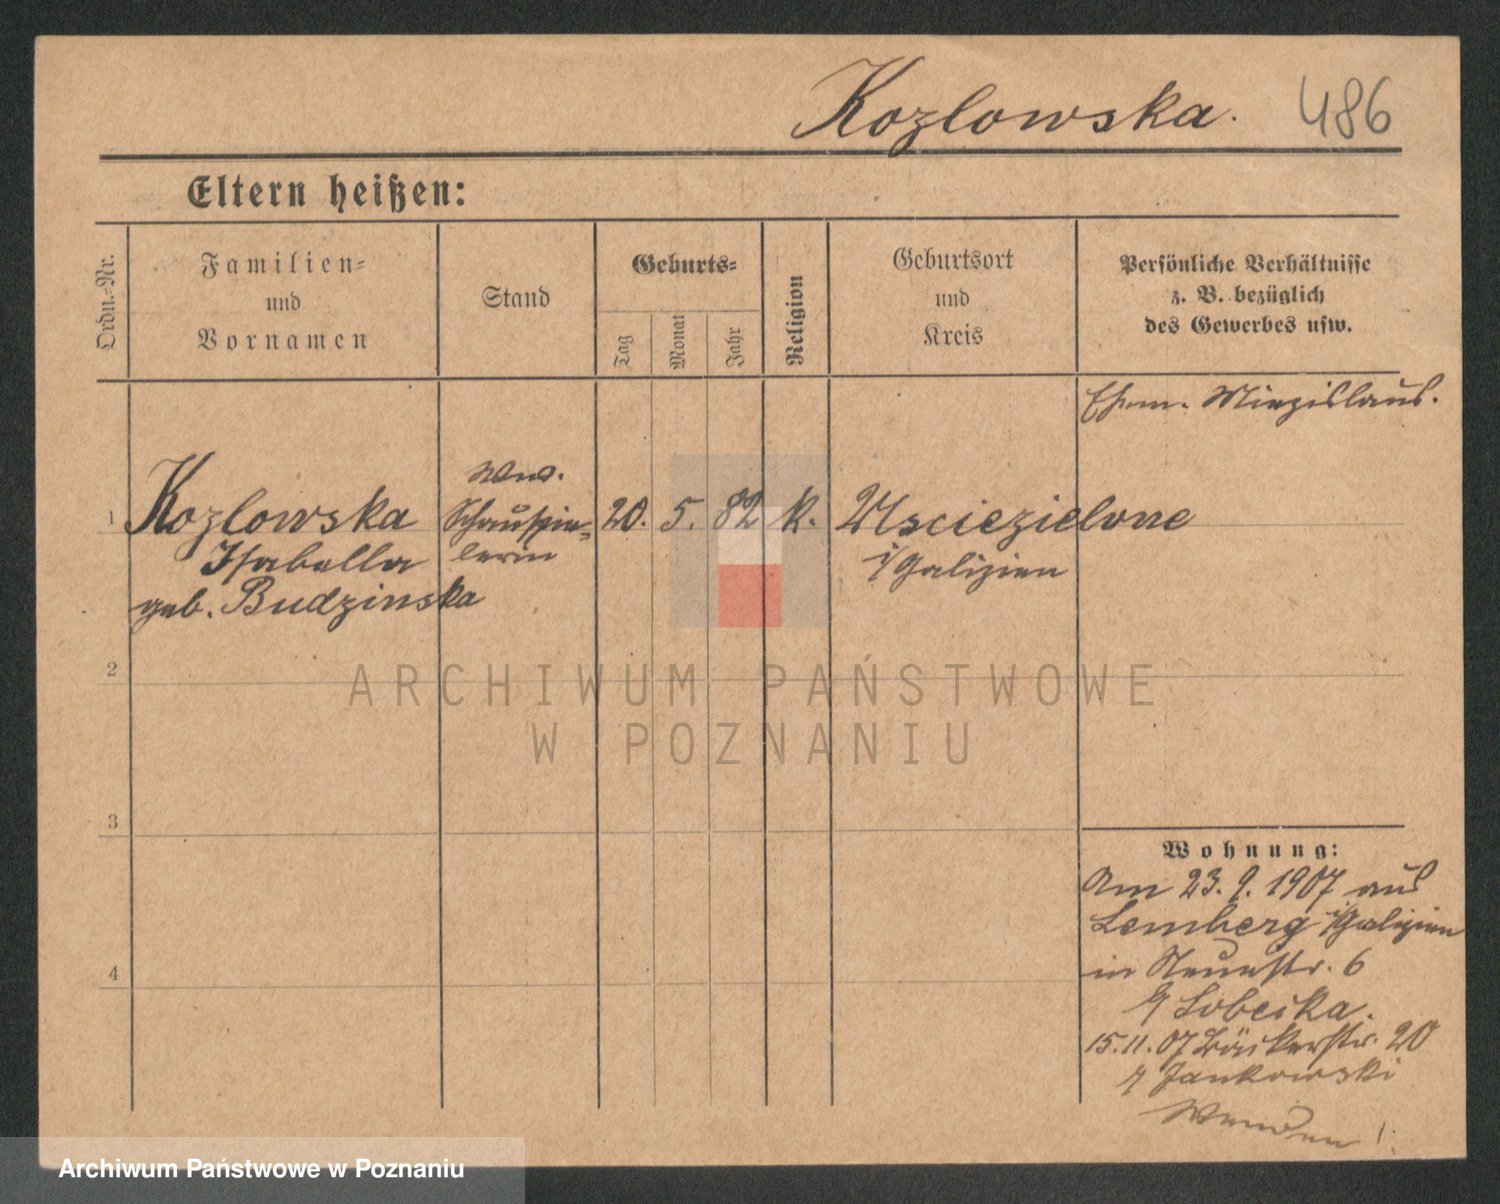 Kozlowska. 486
Eltern heißen:
Ordn.-Nr.
Familien-
und
Vornamen
Stand
Geburts-
Tag
Monat
Jahr
Religion
Geburtsort
und
Kreis
Persönliche Verhältnisse
z. B. bezüglich
des Gewerbes usw.
Ehem. Miezislaus.
Wwe.
1 Kozlowska Schauspie- 20. 5. 82 k. Usciezielone
Isabella lerin i/Galizien
geb. Budzinska
2
3
4
ARCHIWUM PAŃSTWOWE
W POZNANIU
Wohnung:
Am 23. 9. 1907 aus
Lemberg i/Galizien
in Neuestr. 6
Lobecka.
15.11.07 Bäckerstr. 20
Jankowski
Wenden!
Archiwum Państwowe w Poznaniu